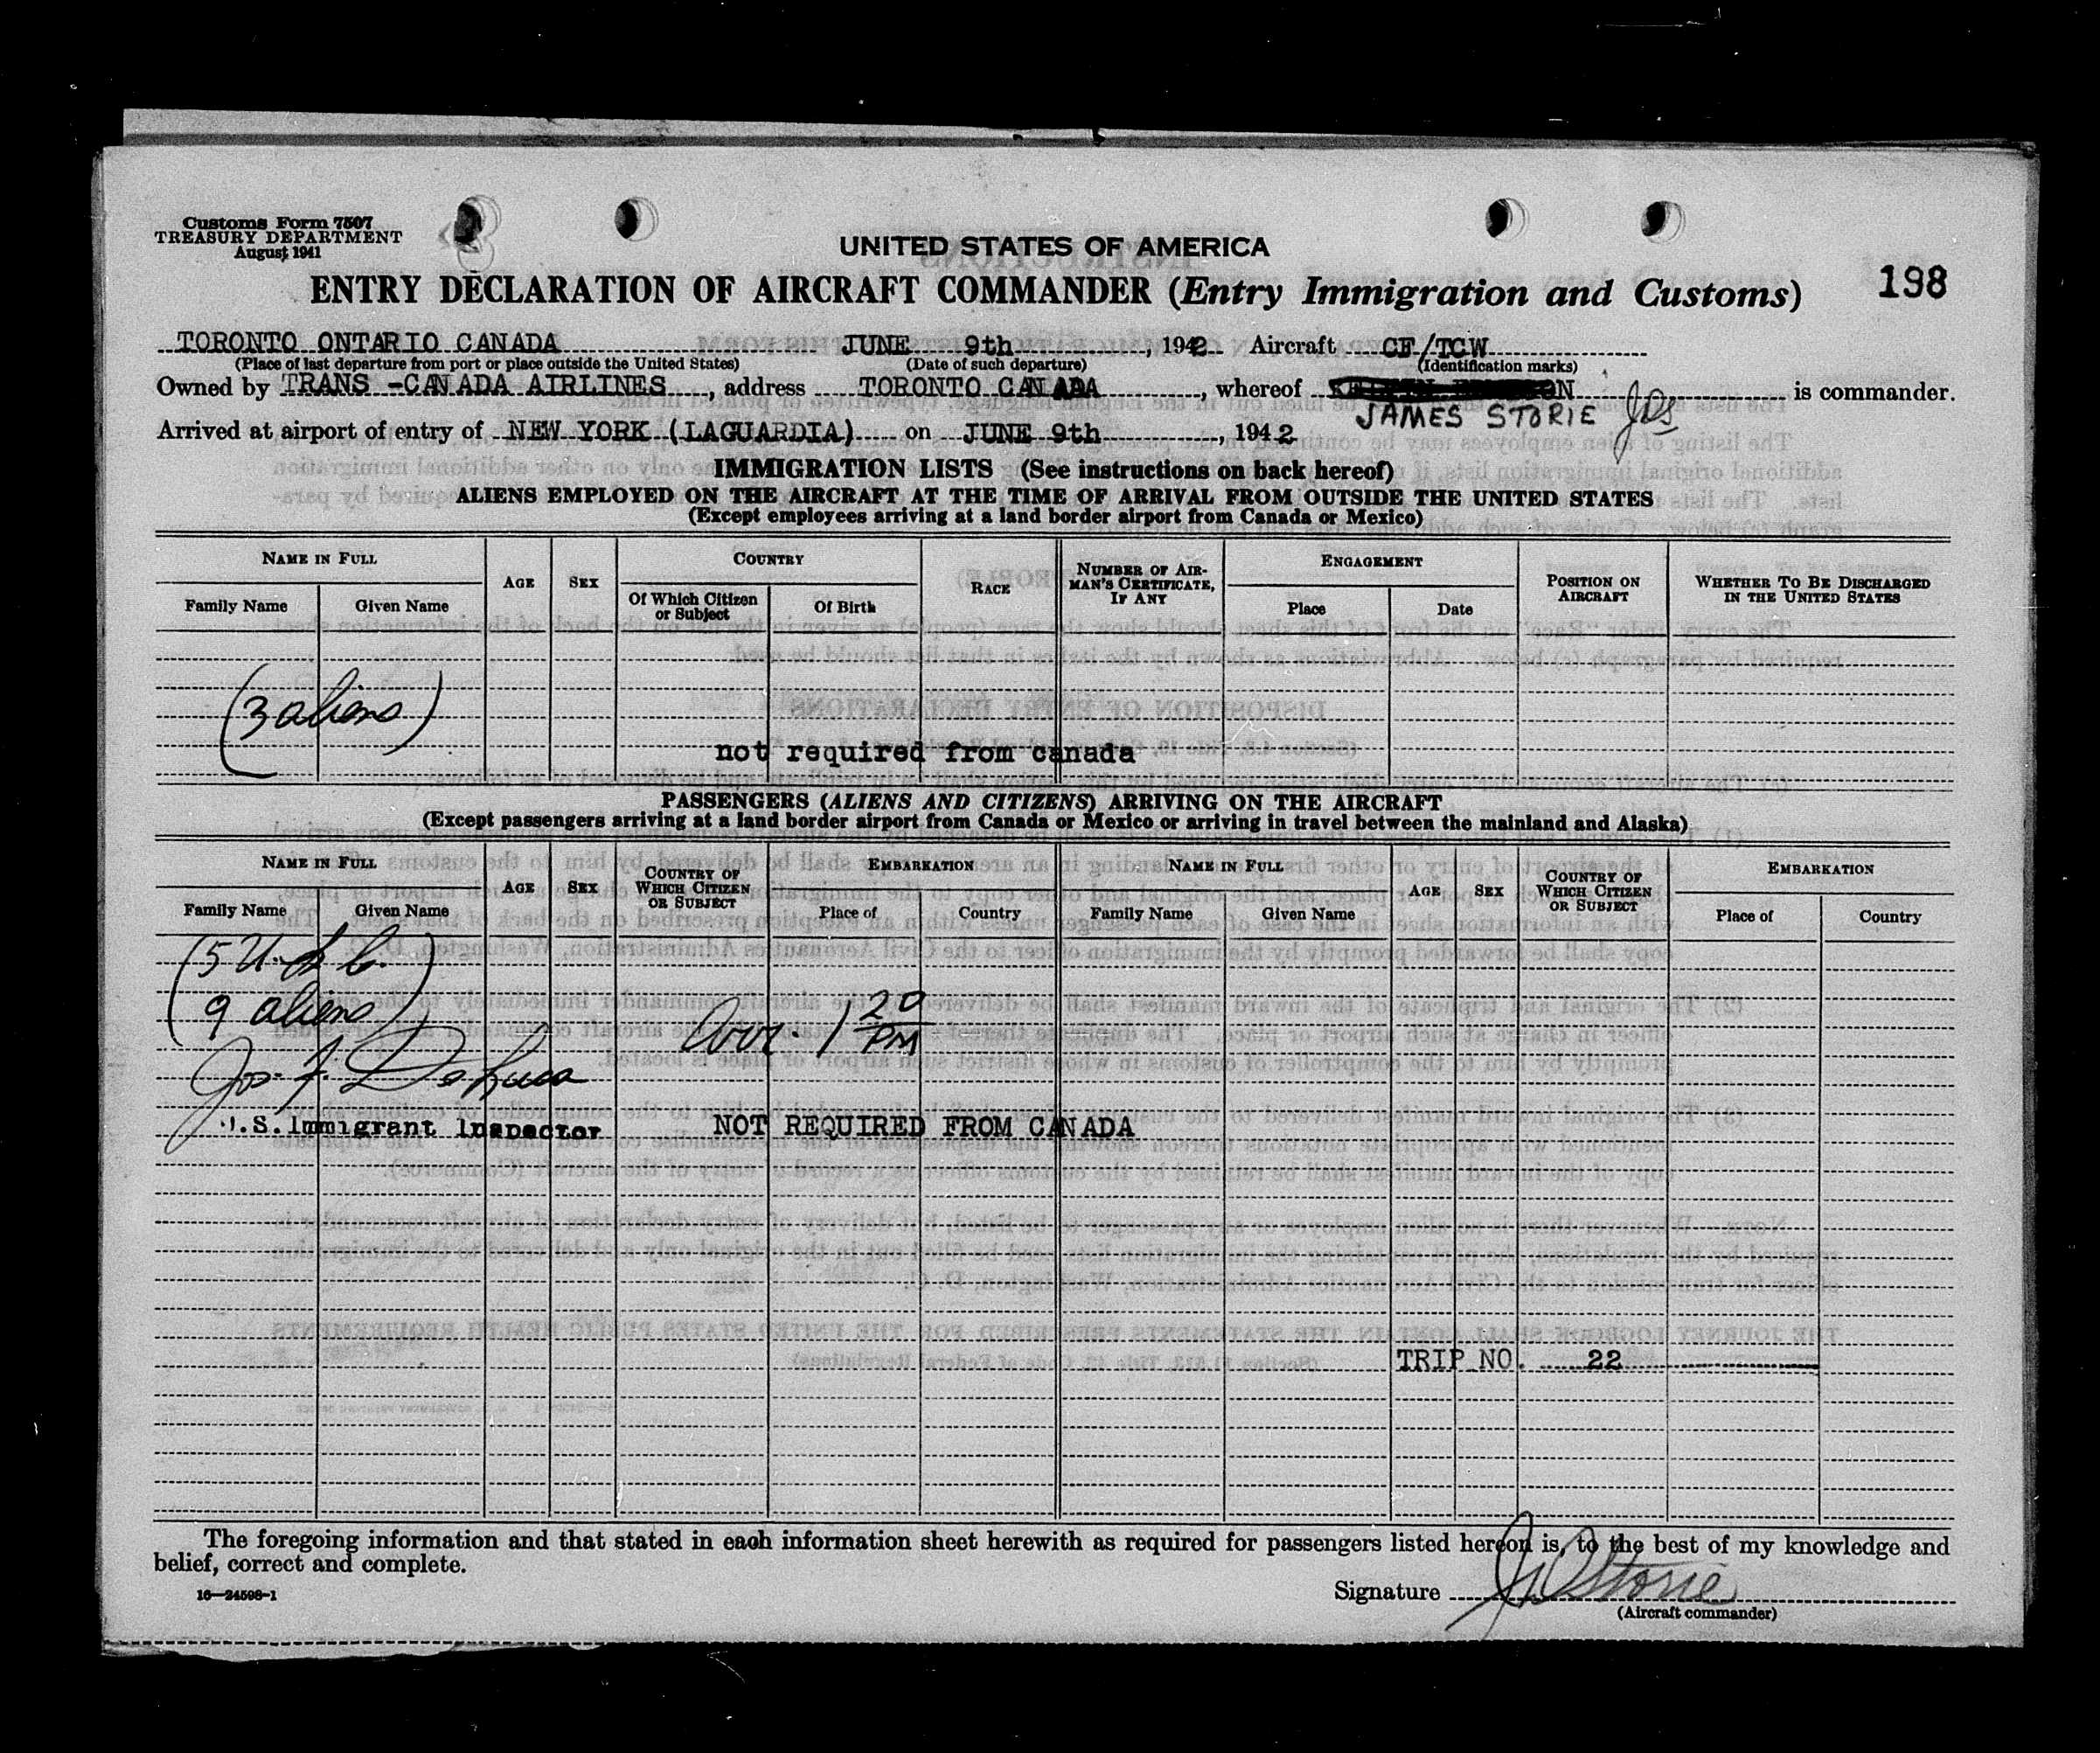 Customs Form 7507
TREASURY DEPARTMENT
August 1941
UNITED STATES OF AMERICA
ENTRY DECLARATION OF AIRCRAFT COMMANDER (Entry Immigration and Customs)
198
TORONTO ONTARIO CANADA JUNE 9th, 1942 Aircraft CF/TCW
(Place of last departure from port or place outside the United States) (Date of such departure) (Identification marks)
Owned by TRANS-CANADA AIRLINES, address TORONTO CANADA, whereof is commander.
JAMES STORIE JDS
Arrived at airport of entry of NEW YORK (LAGUARDIA) on JUNE 9th, 1942
IMMIGRATION LISTS (See instructions on back hereof)
ALIENS EMPLOYED ON THE AIRCRAFT AT THE TIME OF ARRIVAL FROM OUTSIDE THE UNITED STATES
(Except employees arriving at a land border airport from Canada or Mexico)
NAME IN FULL AGE SEX COUNTRY RACE NUMBER OF AIRMAN'S CERTIFICATE, IF ANY ENGAGEMENT POSITION ON AIRCRAFT WHETHER TO BE DISCHARGED IN THE UNITED STATES
Family Name Given Name Of Which Citizen or Subject Of Birth Place Date
(3 aliens)
not required from canada
PASSENGERS (ALIENS AND CITIZENS) ARRIVING ON THE AIRCRAFT
(Except passengers arriving at a land border airport from Canada or Mexico or arriving in travel between the mainland and Alaska)
NAME IN FULL AGE SEX COUNTRY OF WHICH CITIZEN OR SUBJECT EMBARKATION NAME IN FULL AGE SEX COUNTRY OF WHICH CITIZEN OR SUBJECT EMBARKATION
Family Name Given Name Place of Country Family Name Given Name Place of Country
(5 U.S.C.)
(9 aliens)
Arr. 1 20 PM
Jos. F.
.S. Immigrant Inspector NOT REQUIRED FROM CANADA
TRIP NO. 22
The foregoing information and that stated in each information sheet herewith as required for passengers listed hereon is, to the best of my knowledge and
belief, correct and complete.
16—24598-1
Signature JDStorie
(Aircraft commander)